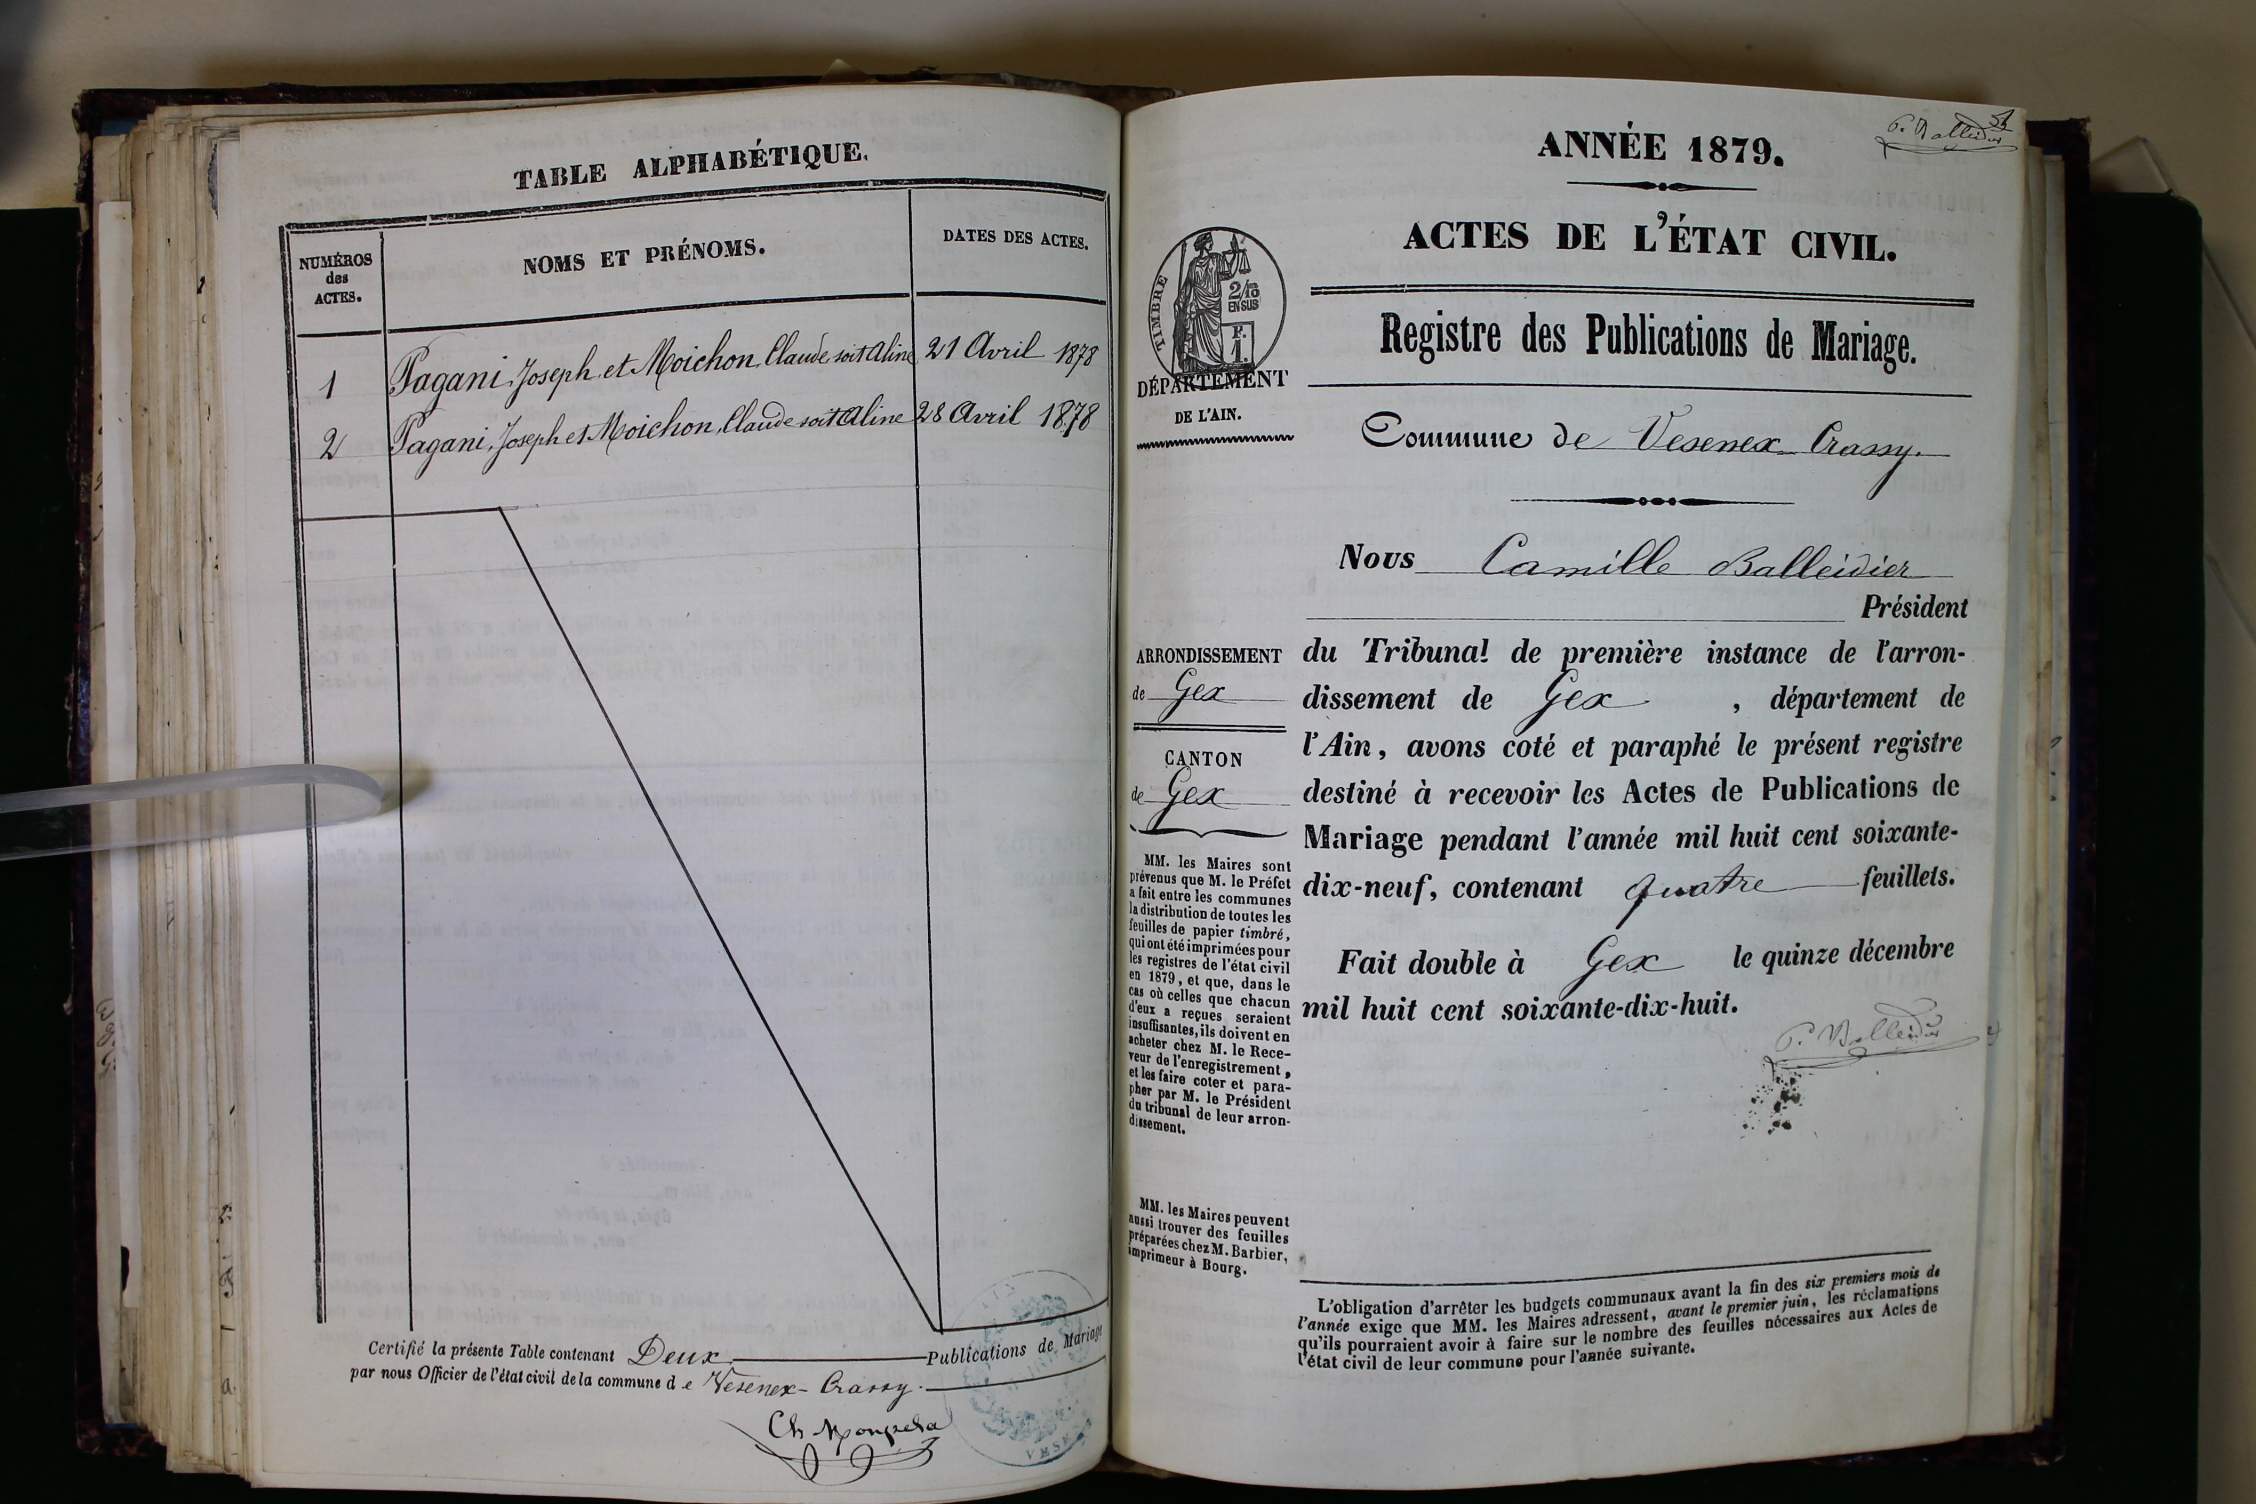 TABLE ALPHABÉTIQUE.
NUMÉROS
des
ACTES.
NOMS ET PRÉNOMS.
DATES DES ACTES.
1 Pagani, Joseph et Moichon, Claude soit Aline 21 Avril 1878
2 Pagani, Joseph et Moichon, Claude soit Aline 28 Avril 1878
Certifié la présente Table contenant Deux Publications de Mariage
par nous Officier de l'état civil de la commune de Vesenex-Crassy.
ANNÉE 1879.
ACTES DE L'ÉTAT CIVIL.
TIMBRE
2/10
EN SUS
F.
1.
DÉPARTEMENT
DE L'AIN.
Registre des Publications de Mariage.
Commune de Vesenex-Crassy.
Nous Camille Balleidier
Président
du Tribunal de première instance de l'arron-
dissement de Gex, département de
l'Ain, avons coté et paraphé le présent registre
destiné à recevoir les Actes de Publications de
Mariage pendant l'année mil huit cent soixante-
dix-neuf, contenant quatre feuillets.
Fait double à Gex le quinze décembre
mil huit cent soixante-dix-huit.
C. Balleidier
ARRONDISSEMENT
de Gex
CANTON
de Gex
MM. les Maires sont
prévenus que M. le Préfet
a fait entre les communes
la distribution de toutes les
feuilles de papier timbré,
qui ont été imprimées pour
les registres de l'état civil
en 1879, et que, dans le
cas où celles que chacun
d'eux a reçues seraient
insuffisantes, ils doivent en
acheter chez M. le Rece-
veur de l'enregistrement,
et les faire coter et para-
pher par M. le Président
du tribunal de leur arron-
dissement.
MM. les Maires peuvent
aussi trouver des feuilles
préparées chez M. Barbier,
imprimeur à Bourg.
L'obligation d'arrêter les budgets communaux avant la fin des six premiers mois de
l'année exige que MM. les Maires adressent, avant le premier juin, les réclamations
qu'ils pourraient avoir à faire sur le nombre des feuilles nécessaires aux Actes de
l'état civil de leur commune pour l'année suivante.